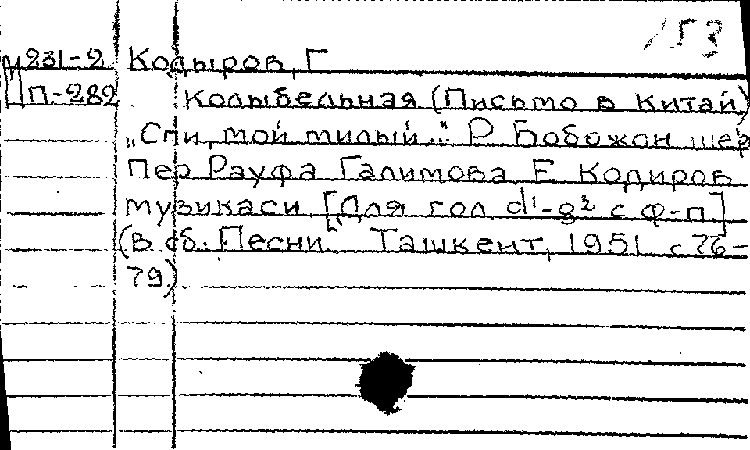 153
м231-2 Кодыров, Г
П-282 Колыбельная (Письмо в Китай)
„Спи, мой милый..." Р. Бобожон шер
Пер Рауфа Галимова Г. Кодиров
музикаси [Для гол d¹-g² с ф-п]
(В сб. Песни" Ташкент, 1951 с 76-
79)